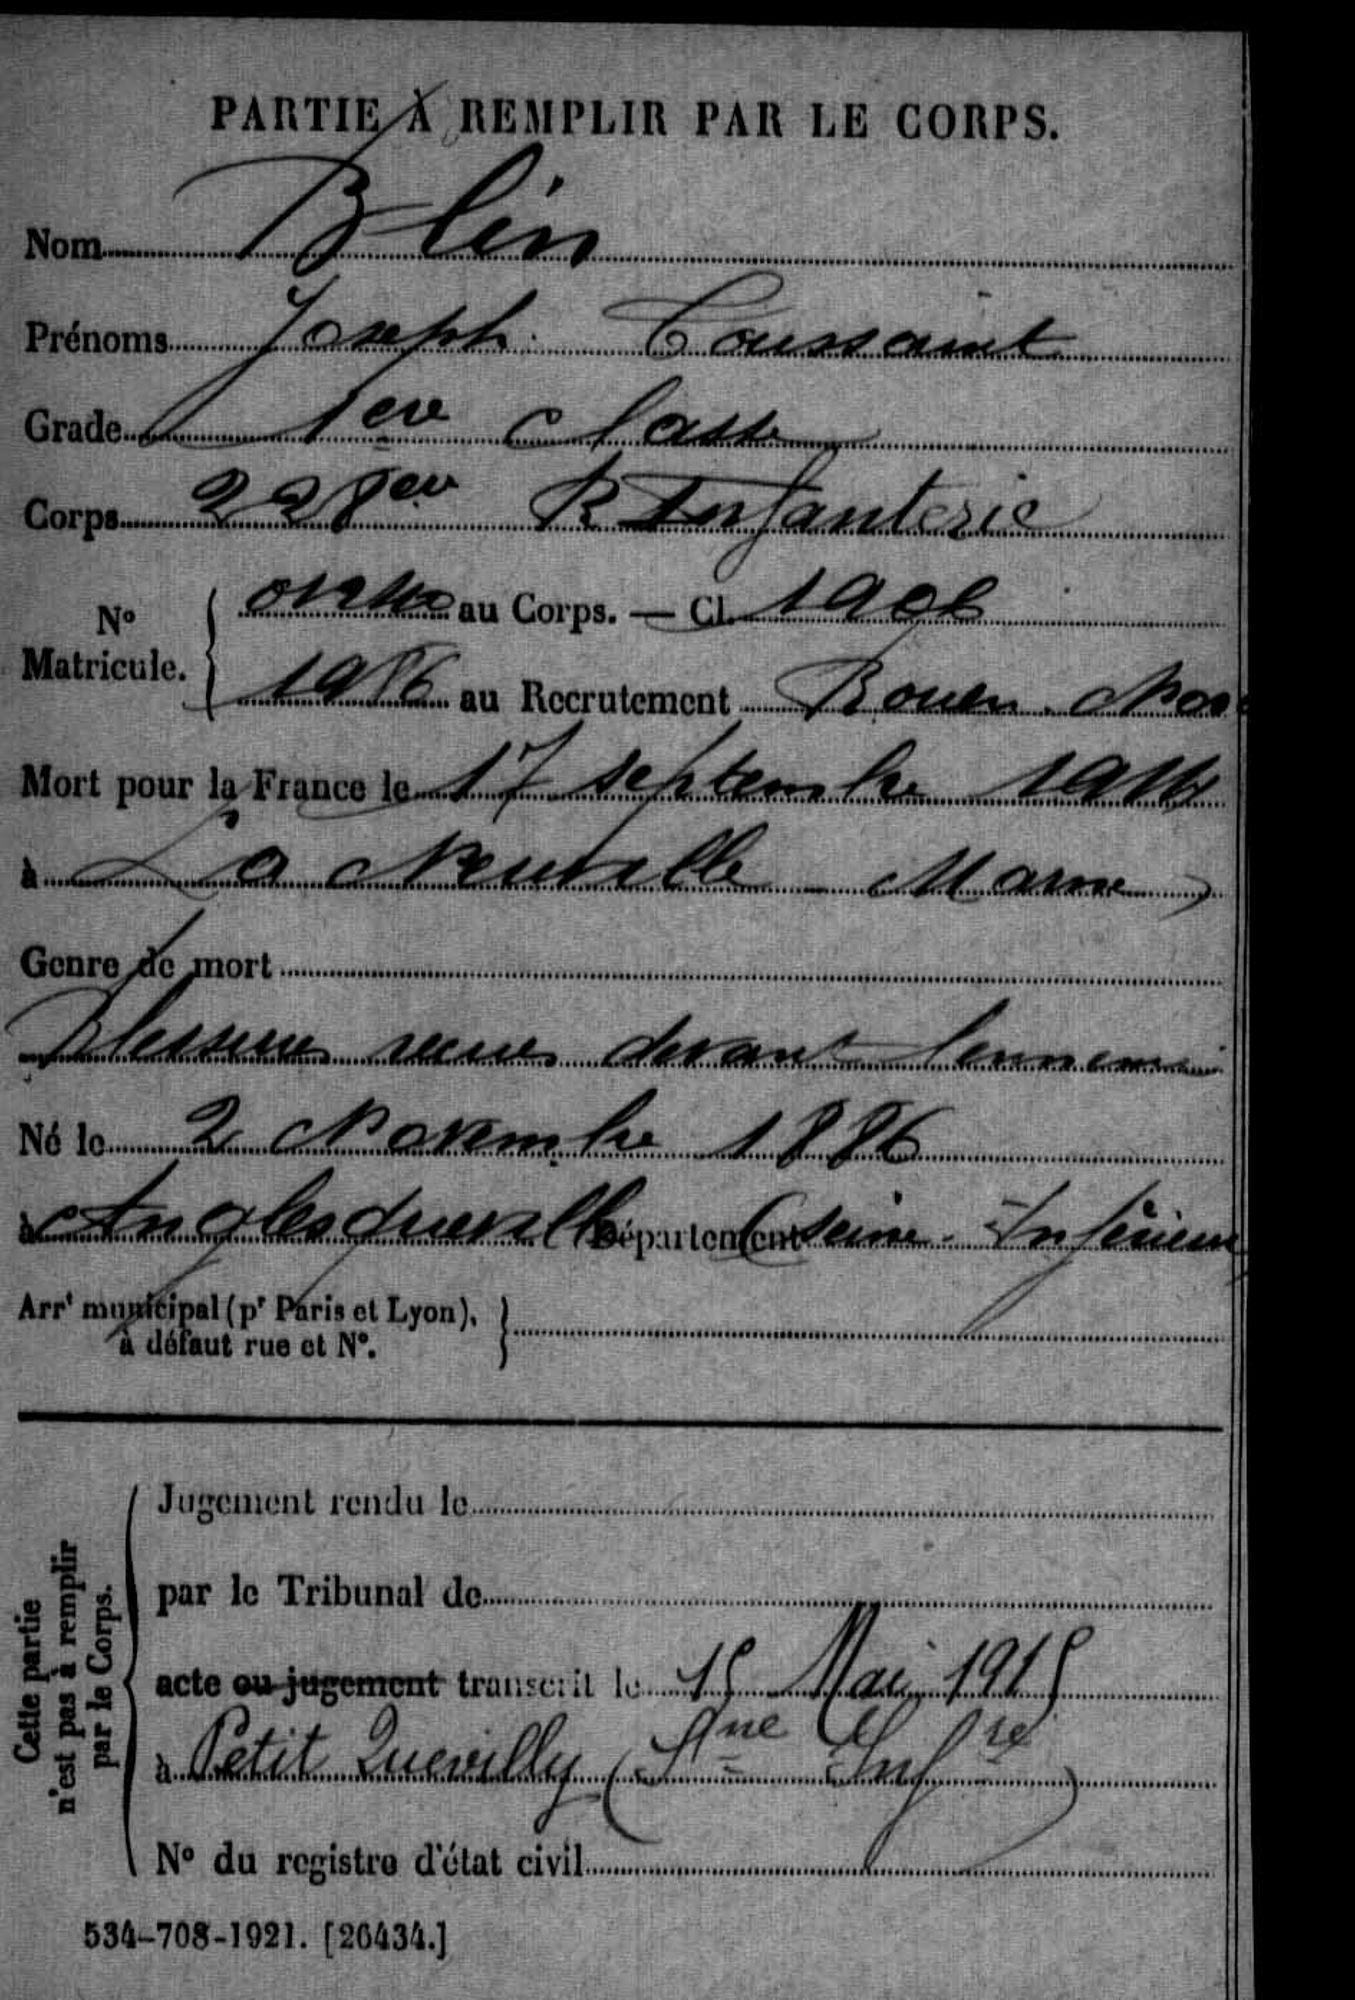 PARTIE À REMPLIR PAR LE CORPS.
Nom Blin
Prénoms Joseph Toussaint
Grade 1ere classe
Corps 228eme R Infanterie
No Matricule. au Corps. — Cl. 1906
1986 au Recrutement Rouen Nord
Mort pour la France le 17 septembre 1914
à La Neuville Marne
Genre de mort
Blessures recues devant lennemi
Né le 2 Novembre 1886
à Anglesqueville Département (Seine-Inférieure
Arrt municipal (pr Paris et Lyon),
à défaut rue et No.
Cette partie
n'est pas à remplir
par le Corps.
Jugement rendu le
par le Tribunal de
acte ou jugement transcrit le 15 Mai 1915
à Petit Quevilly (Sne Infre)
No du registre d'état civil
534-708-1921. [26434.]